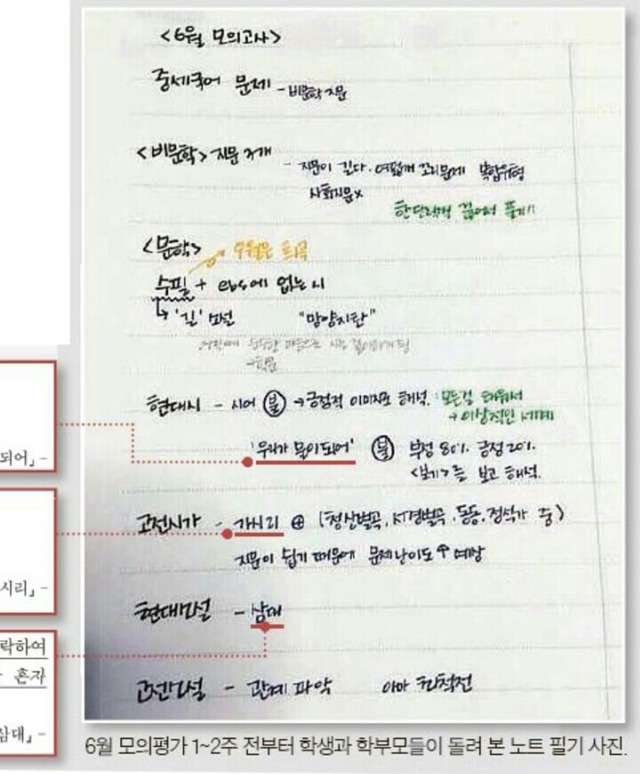 <6월 모의고사>
중세국어 문제 - 비문학 지문
<비문학> 지문 3개
- 지문이 길다. 어렵게 꼬리문제 복합유형
사회지문x
한단락씩 끊어서 풀기!!
<문학> 9월은 희곡
수필 + ebs에 없는 시
→ '길' 소설 "망양지탄"
→학문
현대시 - 시어 불 → 긍정적 이미지로 해석. 모든걸 태워서
→ 이상적인 세계
'우리가 물이 되어' 불 부정 80%. 긍정 20%.
<보기>를 보고 해석.
되어」-
고전시가 - 가시리 ⊕ (청산별곡, 서경별곡, 동동, 정석가 중)
지문이 쉽기 때문에 문제난이도↑ 예상
시리」-
현대소설 - 삼대
락하여
혼자
삼대」-
고전소설 - 관계 파악 아마 최척전
6월 모의평가 1~2주 전부터 학생과 학부모들이 돌려 본 노트 필기 사진.